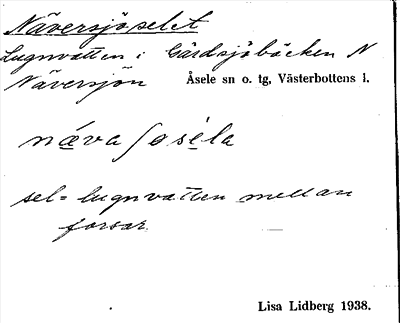 Näversjöselet
Lugnvatten i Gårdsjöbäcken N
Näversjön Åsele sn o. tg, Västerbottens l.
næva ʃøséla
sel = lugnvatten mellan
forsar.
Lisa Lidberg 1938.